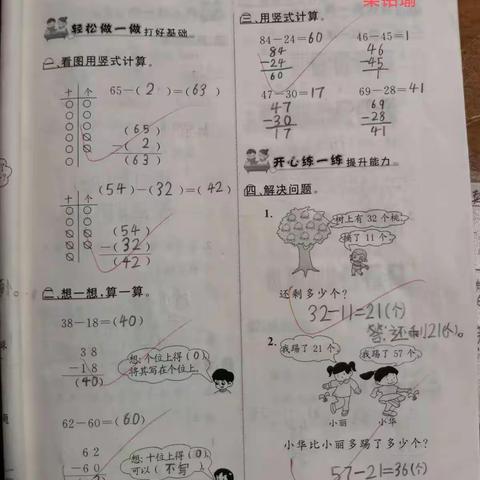 轻松做一做 打好基础
一、看图用竖式计算。
十 个
65-(2)=(63)
(65)
-( 2)
(63)
十 个
(54)-(32)=(42)
(54)
-(32)
(42)
二、想一想,算一算。
38-18=(40)
38
-18
(40)
想:个位上得(0),
将其写在个位上。
62-60=(60)
62
-60
想:十位上得(0)
可以(不写)
三、用竖式计算。
84-24=60
84
-24
60
46-45=1
46
-45
1
47-30=17
47
-30
17
69-28=41
69
-28
41
开心练一练 提升能力
四、解决问题。
1.
树上有32个桃,
摘了11个。
还剩多少个?
32-11=21(个)
答:还剩21个。
2.
我踢了21个。
我踢了57个。
小丽
小华
小华比小丽多踢了多少个?
57-21=36(个)